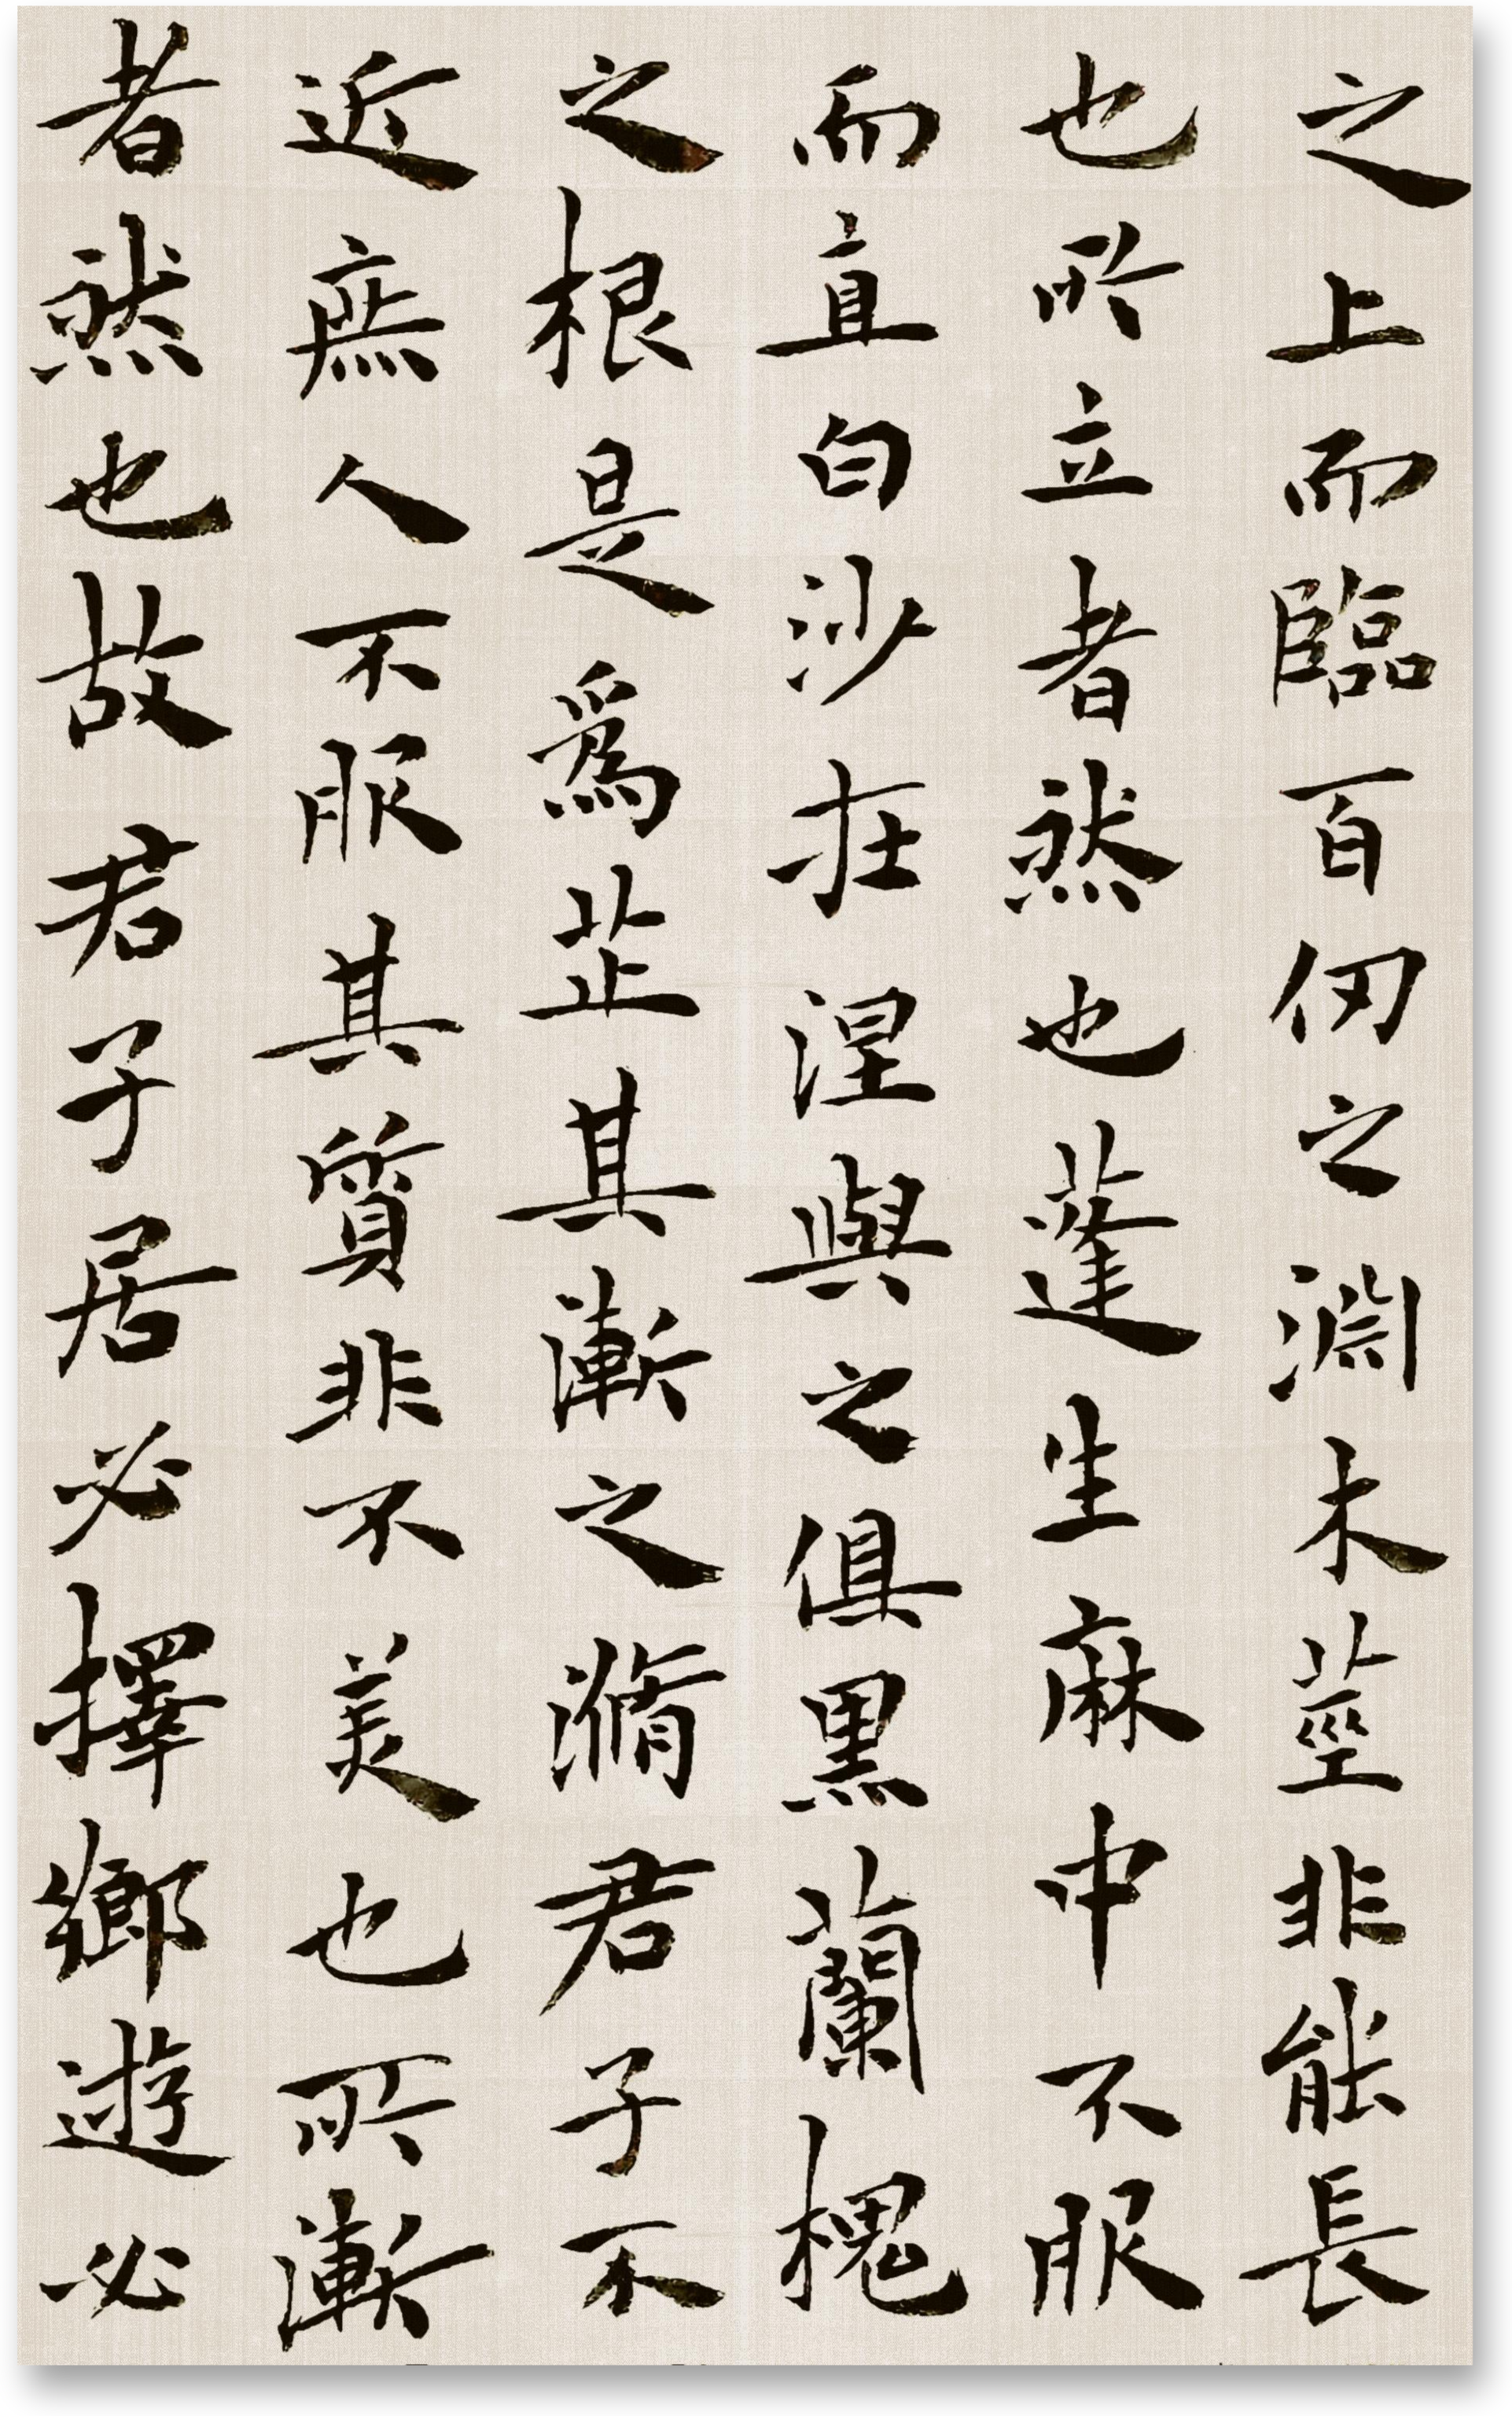 之上而臨百仞之淵木莖非能長
也所立者然也蓬生麻中不服
而直白沙在涅與之俱黑蘭槐
之根是爲芷其漸之滫君子不
近庶人不服其質非不美也所漸
者然也故君子居必擇鄉遊必